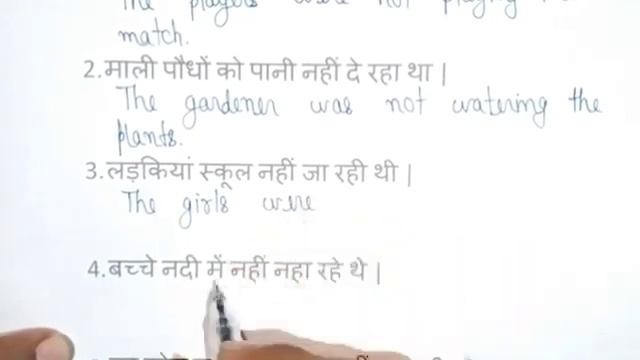 The players were not playing
match.
2.माली पौधों को पानी नहीं दे रहा था |
The gardener was not watering the
plants.
3.लड़कियां स्कूल नहीं जा रही थी |
The girls were
4.बच्चे नदी में नहीं नहा रहे थे |